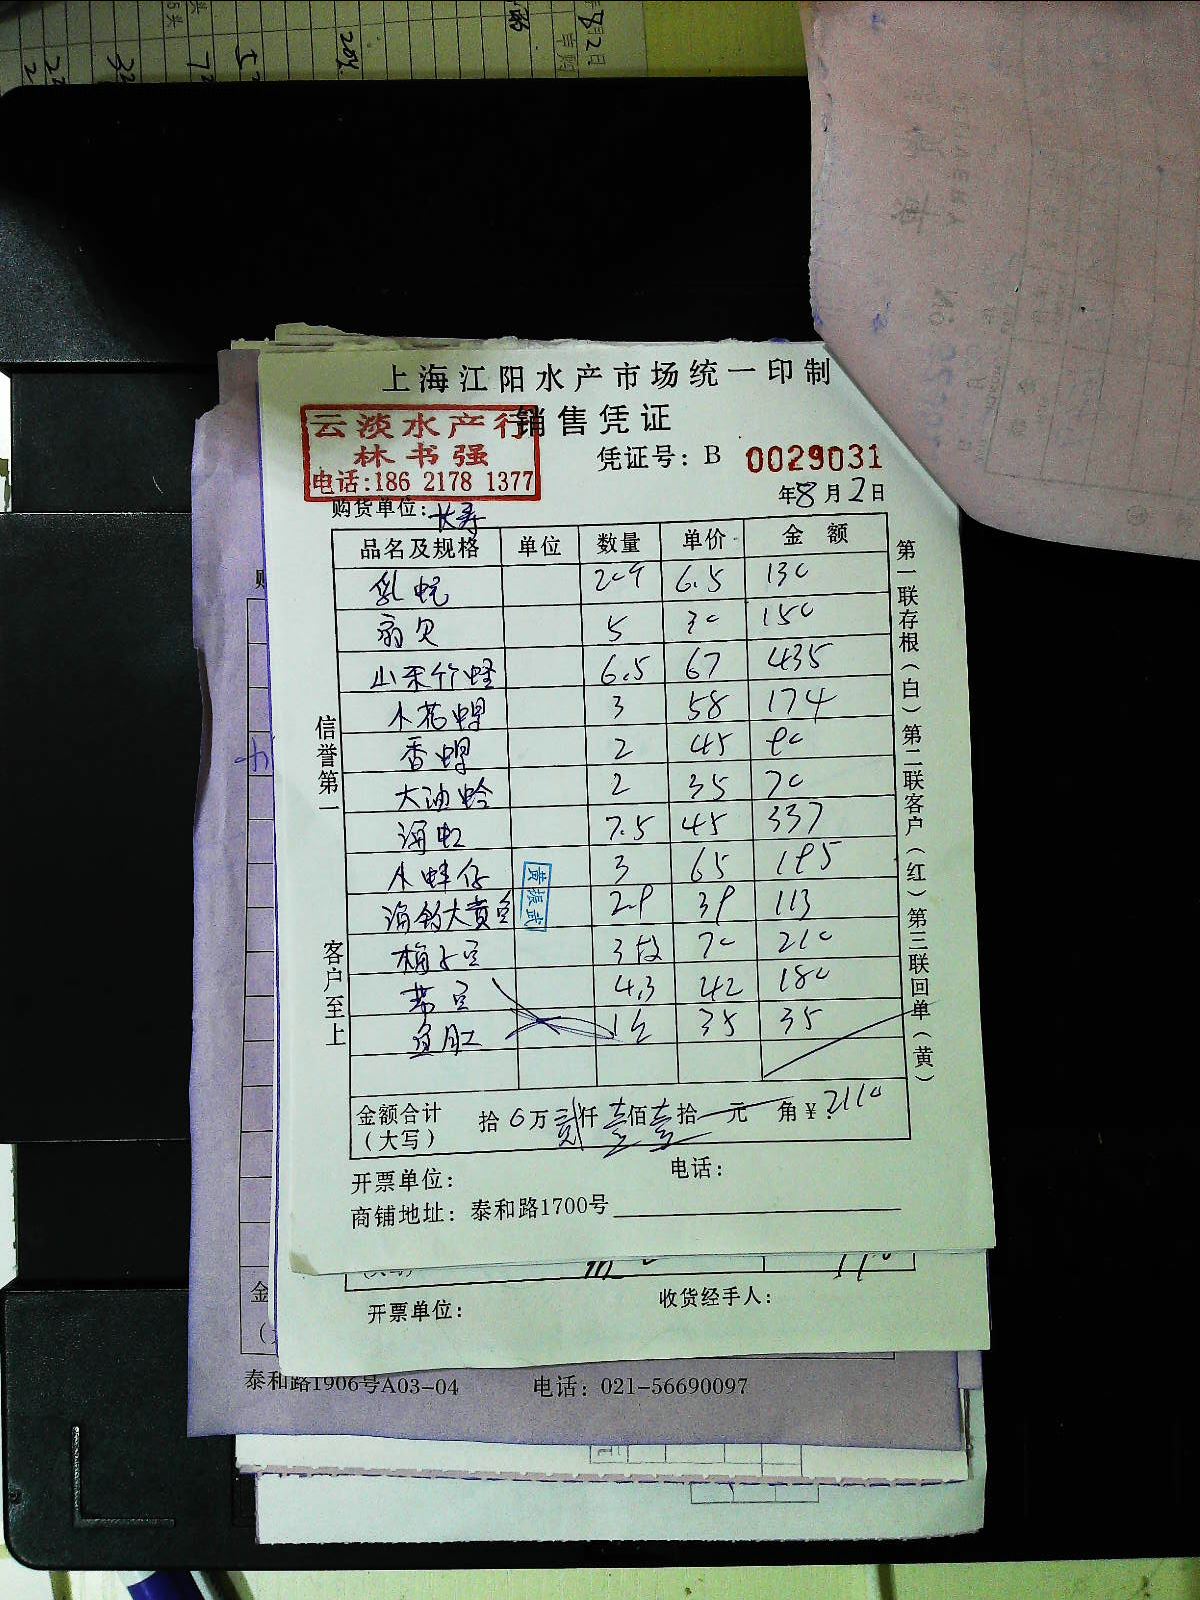 8月2日
上海江阳水产市场统一印制
销售凭证
云淡水产行
林书强
电话:186 2178 1377
凭证号: B 0029031
年8月2日
购货单位: 长寿
品名及规格 单位 数量 单价 金额
乳蚬 20斤 6.5 130
扇贝 5 30 150
山东竹蛏 6.5 67 435
小花螺 3 58 174
香螺 2 45 90
大油蛤 2 35 70
海虹 7.5 45 337
小蚌仔 3 65 195
海钓大黄鱼 2.9 39 113
梅子鱼 3 70 210
带鱼 4.3 42 180
鱼肚 1 35 35
金额合计
(大写)
拾0万贰仟壹佰壹拾元 角¥2110
开票单位: 电话:
商铺地址: 泰和路1700号
信誉第一
客户至上
第一联存根(白)第二联客户(红)第三联回单(黄)
黄振武
开票单位: 收货经手人:
泰和路1906号A03-04 电话: 021-56690097